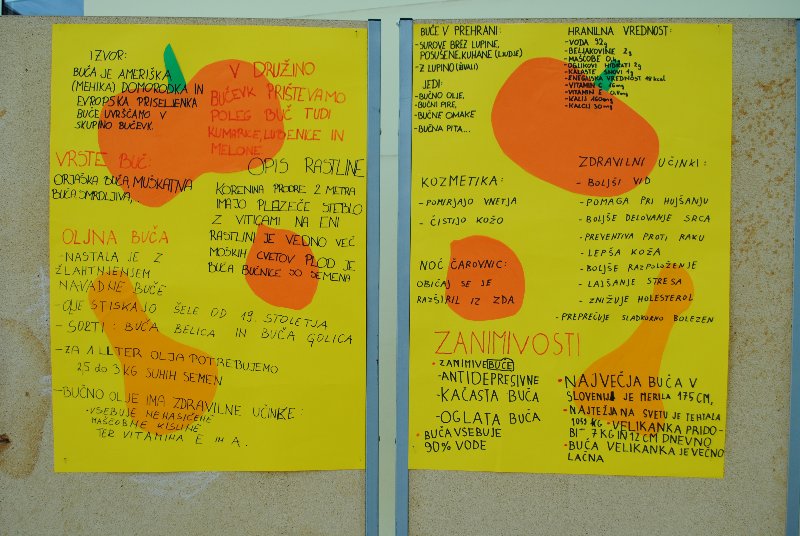 IZVOR:
BUČA JE AMERIŠKA
(MEHIKA) DOMORODKA IN
EVROPSKA PRISELJENKA
BUČE UVRŠČAMO V
SKUPINO BUČEVK.
V DRUŽINO
BUČEVK PRIŠTEVAMO
POLEG BUČ TUDI
KUMARICE, LUBENICE IN
MELONE.
VRSTE BUČ:
ORJAŠKA BUČA, MUŠKATNA
BUČA SMRDLJIVA,
OPIS RASTLINE
KORENINA PRODRE 2 METRA
IMAJO PLAZEČE STEBLO
Z VITICAMI NA ENI
RASTLINI JE VEDNO VEČ
MOŠKIH CVETOV PLOD JE
BUČA BUČNICE SO SEMENA
OLJNA BUČA
-NASTALA JE Z
ŽLAHTNJENJEM
NAVADNE BUČE
-OLJE STISKAJO ŠELE OD 19. STOLETJA
-SORTI: BUČA BELICA IN BUČA GOLICA
-ZA 1 LITER OLJA POTREBUJEMO
2,5 do 3 KG SUHIH SEMEN
-BUČNO OLJE IMA ZDRAVILNE UČINKE:
-VSEBUJE NENASIČENE
MAŠČOBNE KISLINE
TER VITAMINA E IN A.
BUČE V PREHRANI:
-SUROVE BREZ LUPINE,
POSUŠENE, KUHANE (LJUDJE)
-Z LUPINO (ŽIVALI)
JEDI:
-BUČNO OLJE,
-BUČNI PIRE,
-BUČNE OMAKE
-BUČNA PITA...
HRANILNA VREDNOST:
-VODA 92g
-BELJAKOVINE 2g
-MAŠČOBE
-OGLJIKOVI HIDRATI 2g
-ENERGIJSKA VREDNOST kcal
-VITAMIN C
-VITAMIN E
-KALIJ
-KALCIJ 30mg
KOZMETIKA:
-POMIRJAJO VNETJA
-ČISTIJO KOŽO
ZDRAVILNI UČINKI:
-BOLJŠI VID
-POMAGA PRI HUJŠANJU
-BOLJŠE DELOVANJE SRCA
-PREVENTIVA PROTI RAKU
-LEPŠA KOŽA
-BOLJŠE RAZPOLOŽENJE
-LAJŠANJE STRESA
-ZNIŽUJE HOLESTEROL
-PREPREČUJE SLADKORNO BOLEZEN
NOČ ČAROVNIC:
OBIČAJ SE JE
RAZŠIRIL IZ ZDA
ZANIMIVOSTI
•ZANIMIVE BUČE
-ANTIDEPRESIVNE
-KAČASTA BUČA
-OGLATA BUČA
•BUČA VSEBUJE
90% VODE
•NAJVEČJA BUČA V
SLOVENIJI JE MERILA 175 CM,
•NAJTEŽJA NA SVETU JE TEHTALA
KG •VELIKANKA PRIDO-
BI 7 KG IN 12 CM DNEVNO
•BUČA VELIKANKA JE VEČNO
LAČNA